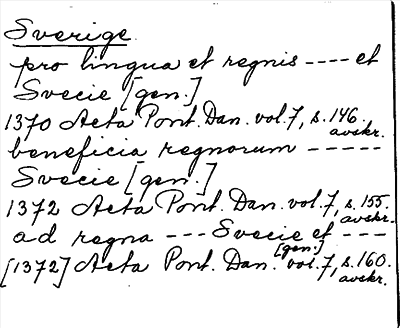 Sverige.
pro lingua et regnis ---- et
Svecie [gen.]
1370 Acta Pont. Dan. vol. 7, s. 146.
avskr.
beneficia regnorum -----
Svecie [gen.]
1372 Acta Pont. Dan. vol. 7, s. 155.
avskr.
ad regna --- Svecie et ---
[gen.]
[1372] Acta Pont. Dan. vol. 7, s. 160.
avskr.